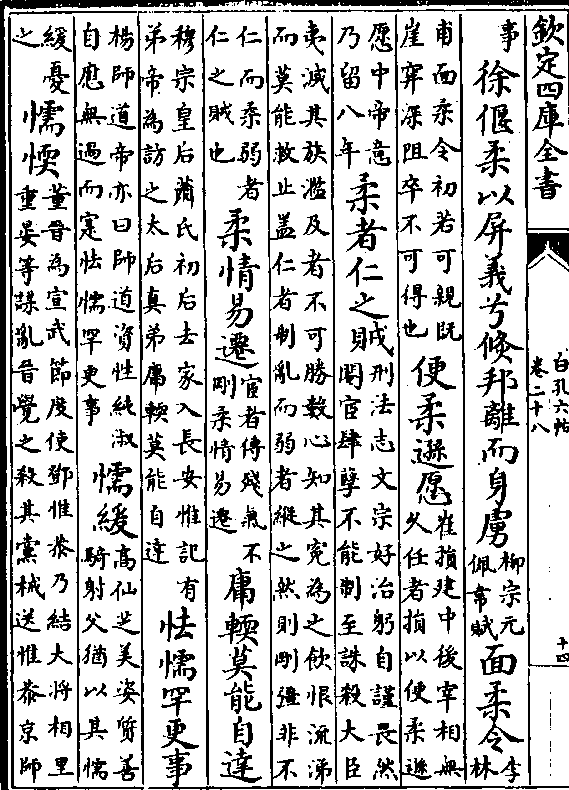 欽定四庫全書
白孔六帖
卷二十八
十四
事
徐偃柔以屏義兮倐邦離而身虜
柳宗元
佩韋賦
面柔令
李
林
甫面柔令初若可親既
崖穽深阻卒不可得也
便柔遜愿
崔損建中後宰相無
久任者損以便柔遜
愿中帝意
乃留八年
柔者仁之賊
刑法志文宗好治躬自謹畏然
閹宦肆孽不能制至誅殺大臣
夷滅其族濫及者不可勝數心知其寃為之飲恨流涕
而莫能救止盖仁者制亂而弱者縱之然則剛彊非不
仁而柔弱者
仁之賊也
柔情易遷
宦者傳殘氣不
剛柔情易遷
庸輭莫能自達
穆宗皇后蕭氏初后去家入長安惟記有
弟帝為訪之太后真弟庸輭莫能自達
怯懦罕更事
楊師道帝亦曰師道資性純淑
自應無過而寔怯懦罕更事
懦緩
高仙芝美姿質善
騎射父猶以其懦
緩憂
之
懦愞
董晉為宣武節度使鄧惟恭乃結大将相里
重晏等謀亂晉覺之殺其黨械送惟恭京師